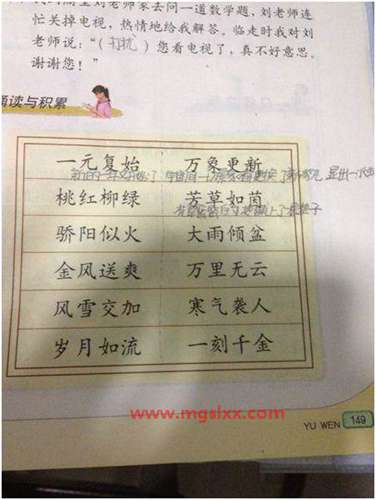 忙关掉电视，热情地给我解答。临走时我对刘
老师说：“（打扰）您看电视了，真不好意思。
谢谢您！”
诵读与积累
一元复始 万象更新
桃红柳绿 芳草如茵
骄阳似火 大雨倾盆
金风送爽 万里无云
风雪交加 寒气袭人
岁月如流 一刻千金
www.mgslxx.com
YU WEN 149